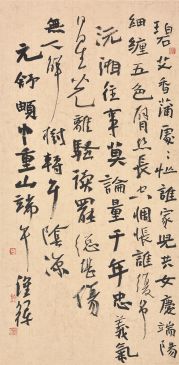 碧艾香蒲處〻忙誰家兒共女慶端陽
細纏五色臂絲長空惆悵誰復弔
沅湘往事莫論量千年忠義氣
日星光離騷讀罷總堪傷
無人解樹轉午陰涼
元舒頔小重山端午